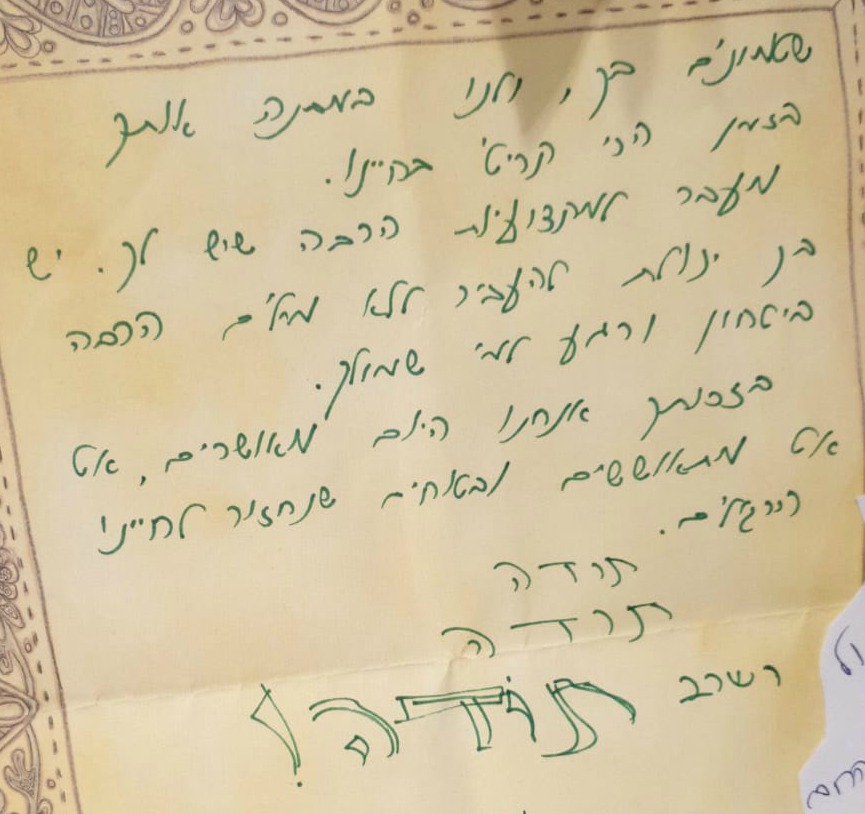 שטמונים בך, ולנו במתנה אותך
בזמן הכי קריטי בחיינו.
מעבר למקצועיות הרבה שיש לך. יש
בך יכולת להעביר ללא מילים הרבה
ביטחון ורוגע למי שמולך.
בזכותך אנחנו היום מאושרים, אט
אט מתאוששים ובטוחים שנחזור לחיינו
הרגילים.
תודה
תודה
ושוב תודה!